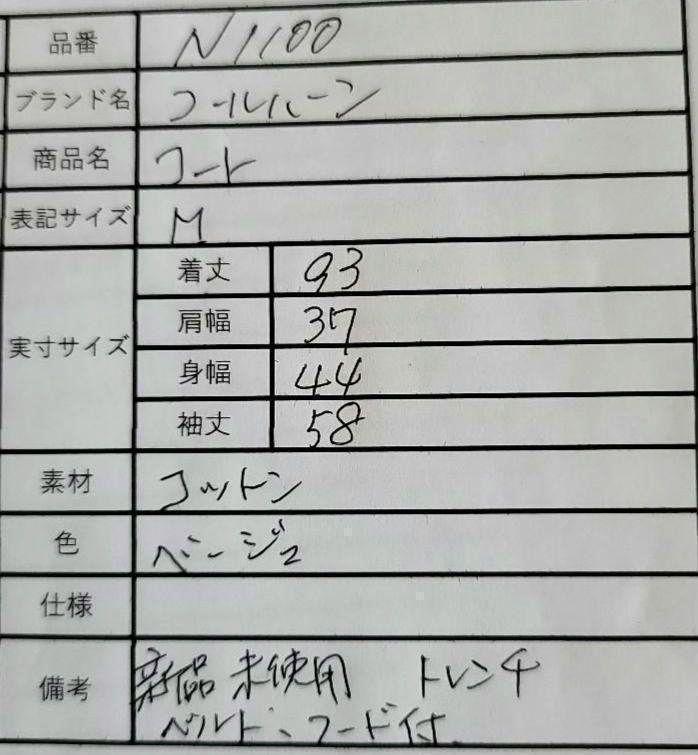 品番 N1100
ブランド名 コールハーン
商品名 コート
表記サイズ M
実寸サイズ
着丈 93
肩幅 37
身幅 44
袖丈 58
素材 コットン
色 ベージュ
仕様
備考 新品未使用 トレンチ
ベルト、フード付